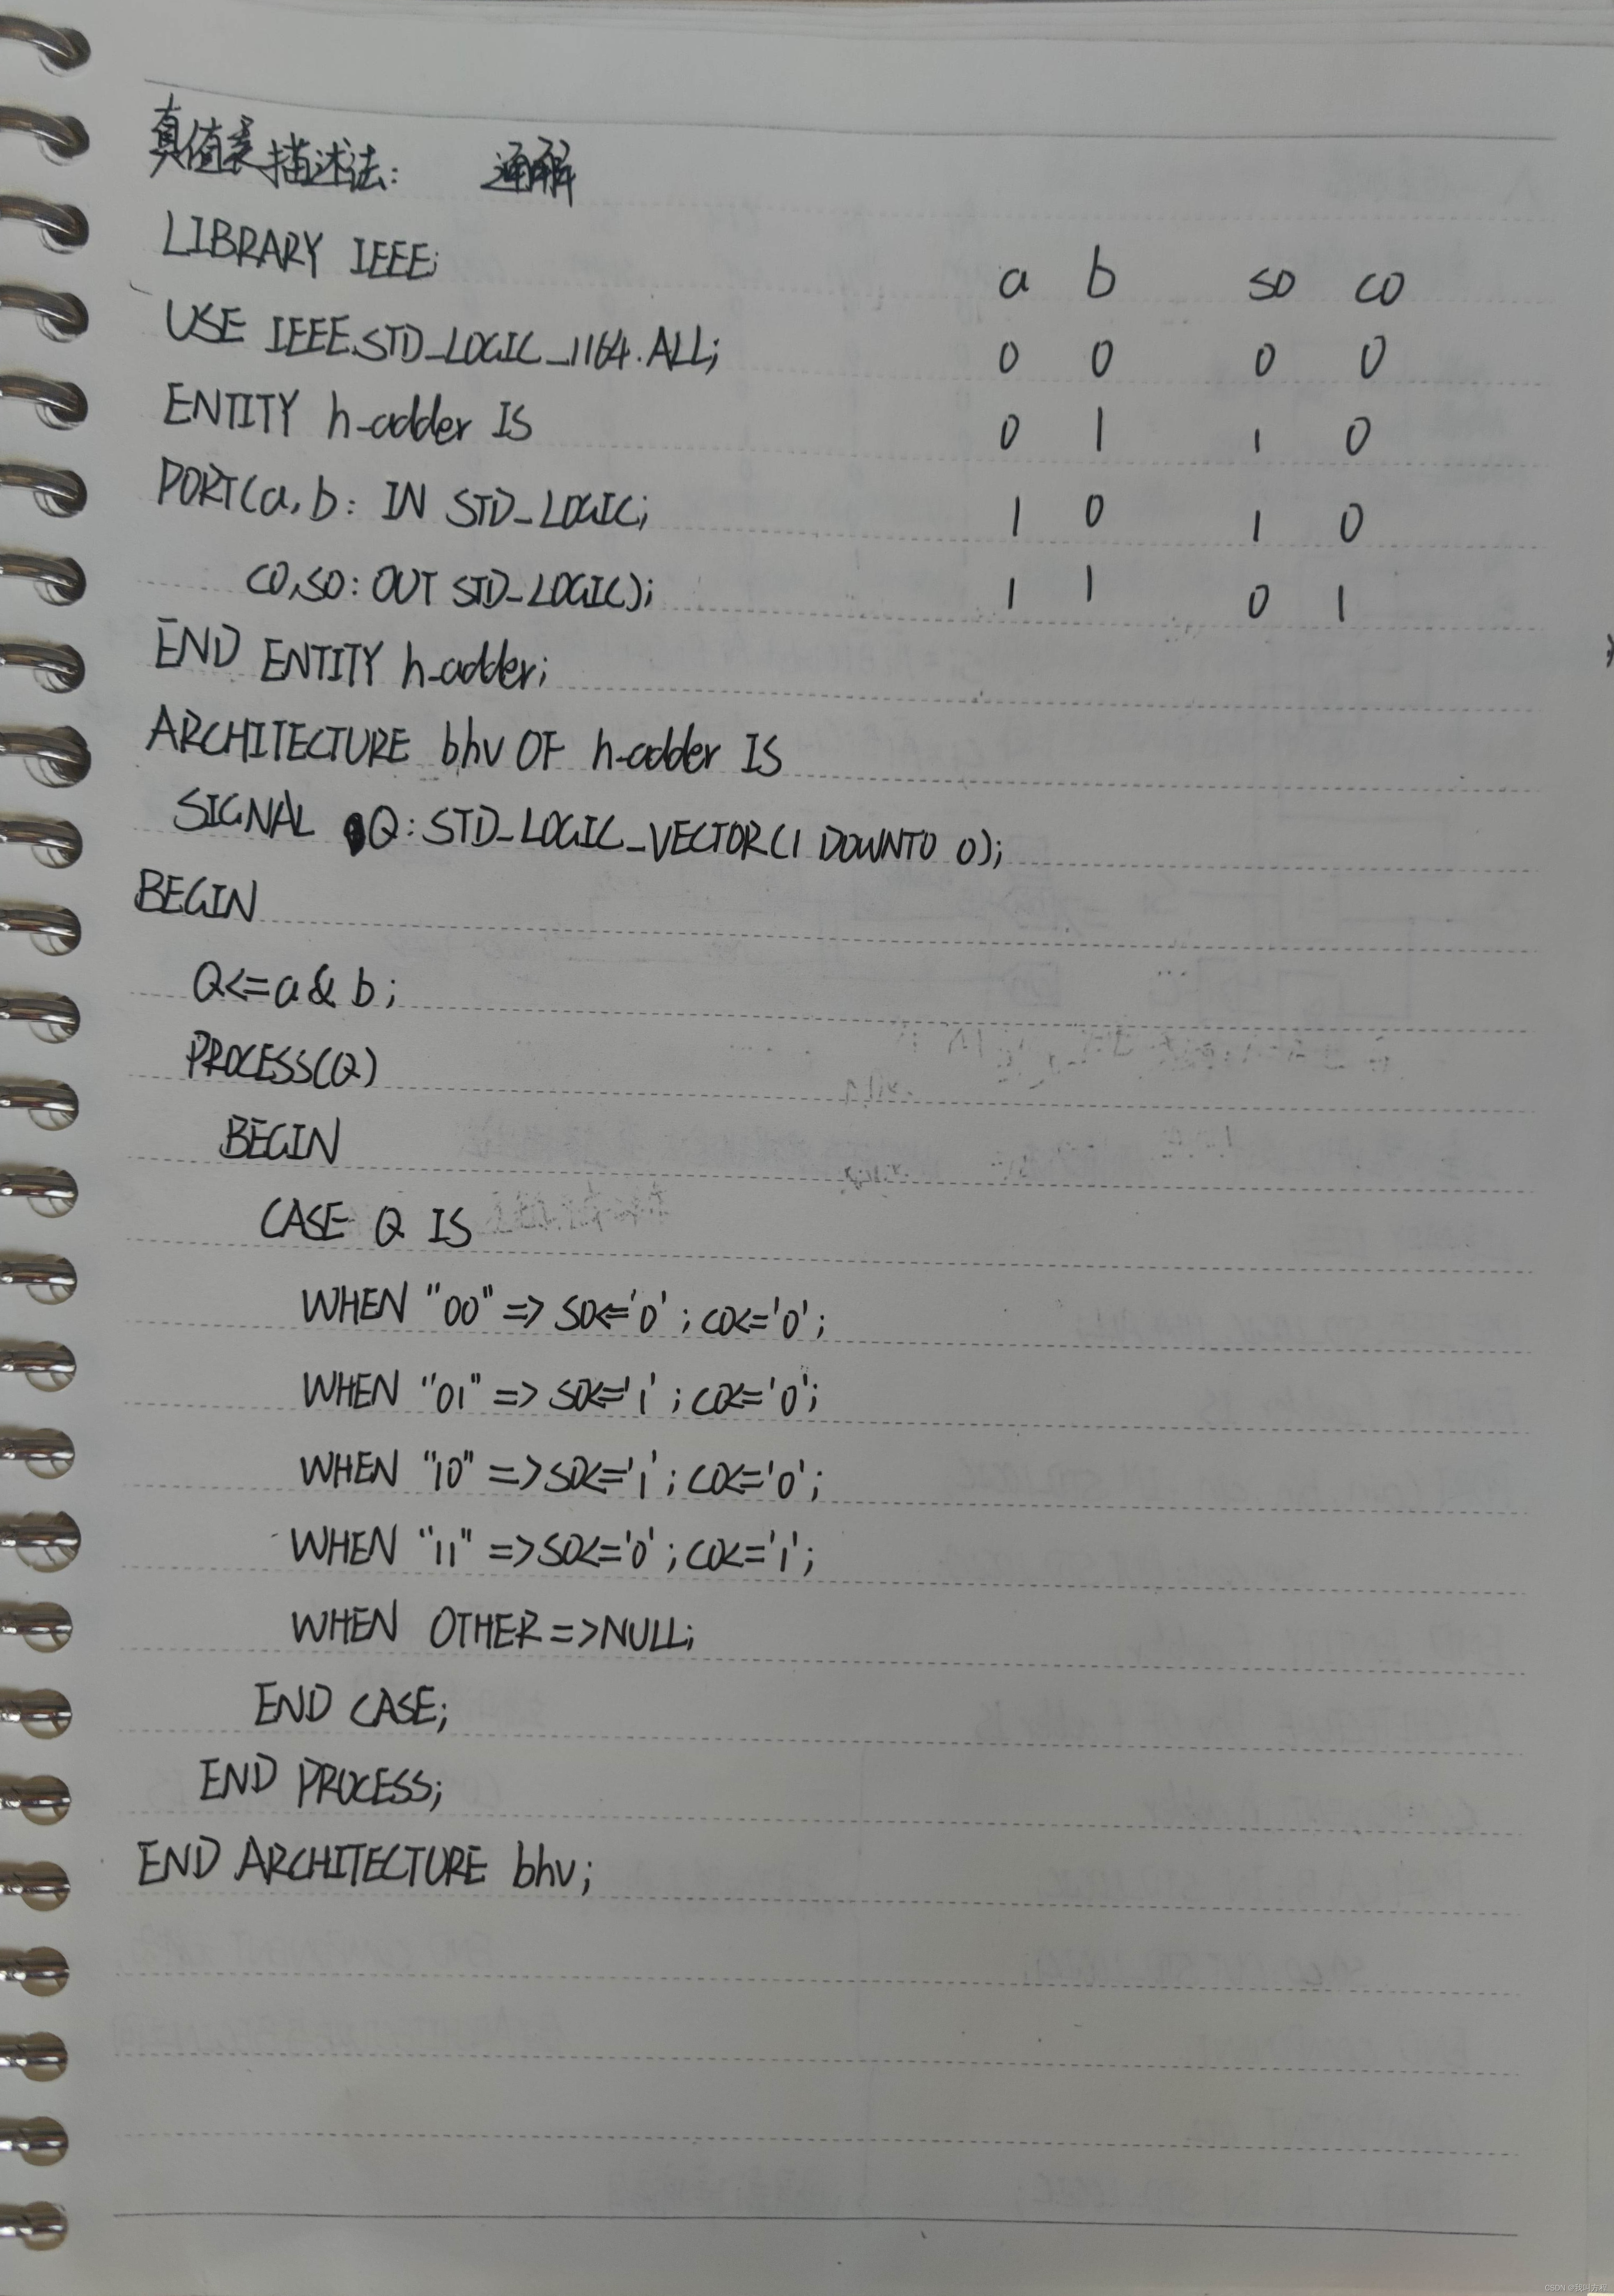 真值表描述法: 通解
LIBRARY IEEE;
USE IEEE.STD_LOGIC_1164.ALL;
ENTITY h_adder IS
PORT(a,b: IN STD_LOGIC;
co,so: OUT STD_LOGIC);
END ENTITY h_adder;
ARCHITECTURE bhv OF h_adder IS
SIGNAL Q: STD_LOGIC_VECTOR(1 DOWNTO 0);
BEGIN
Q<=a & b;
PROCESS(Q)
BEGIN
CASE Q IS
WHEN "00" => so<='0'; co<='0';
WHEN "01" => so<='1'; co<='0';
WHEN "10" => so<='1'; co<='0';
WHEN "11" => so<='0'; co<='1';
WHEN OTHER => NULL;
END CASE;
END PROCESS;
END ARCHITECTURE bhv;
a b so co
0 0 0 0
0 1 1 0
1 0 1 0
1 1 0 1
CSDN @我叫方程